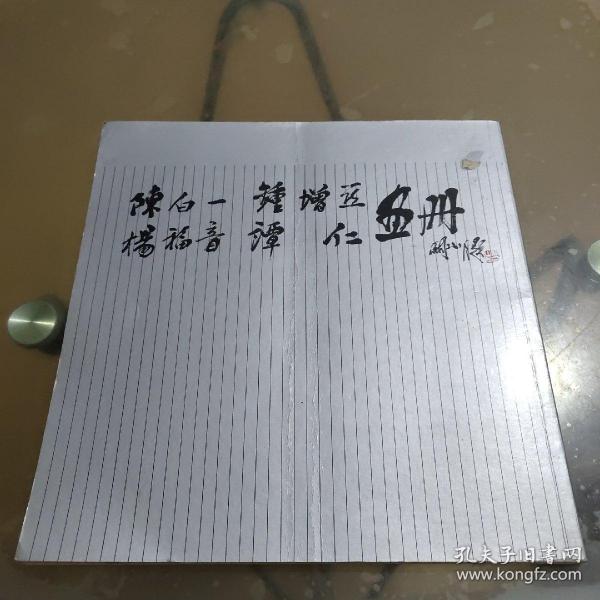 陳白一 鍾增亚 画册
楊福音 譚 仁
孔夫子旧书网
www.kongfz.com